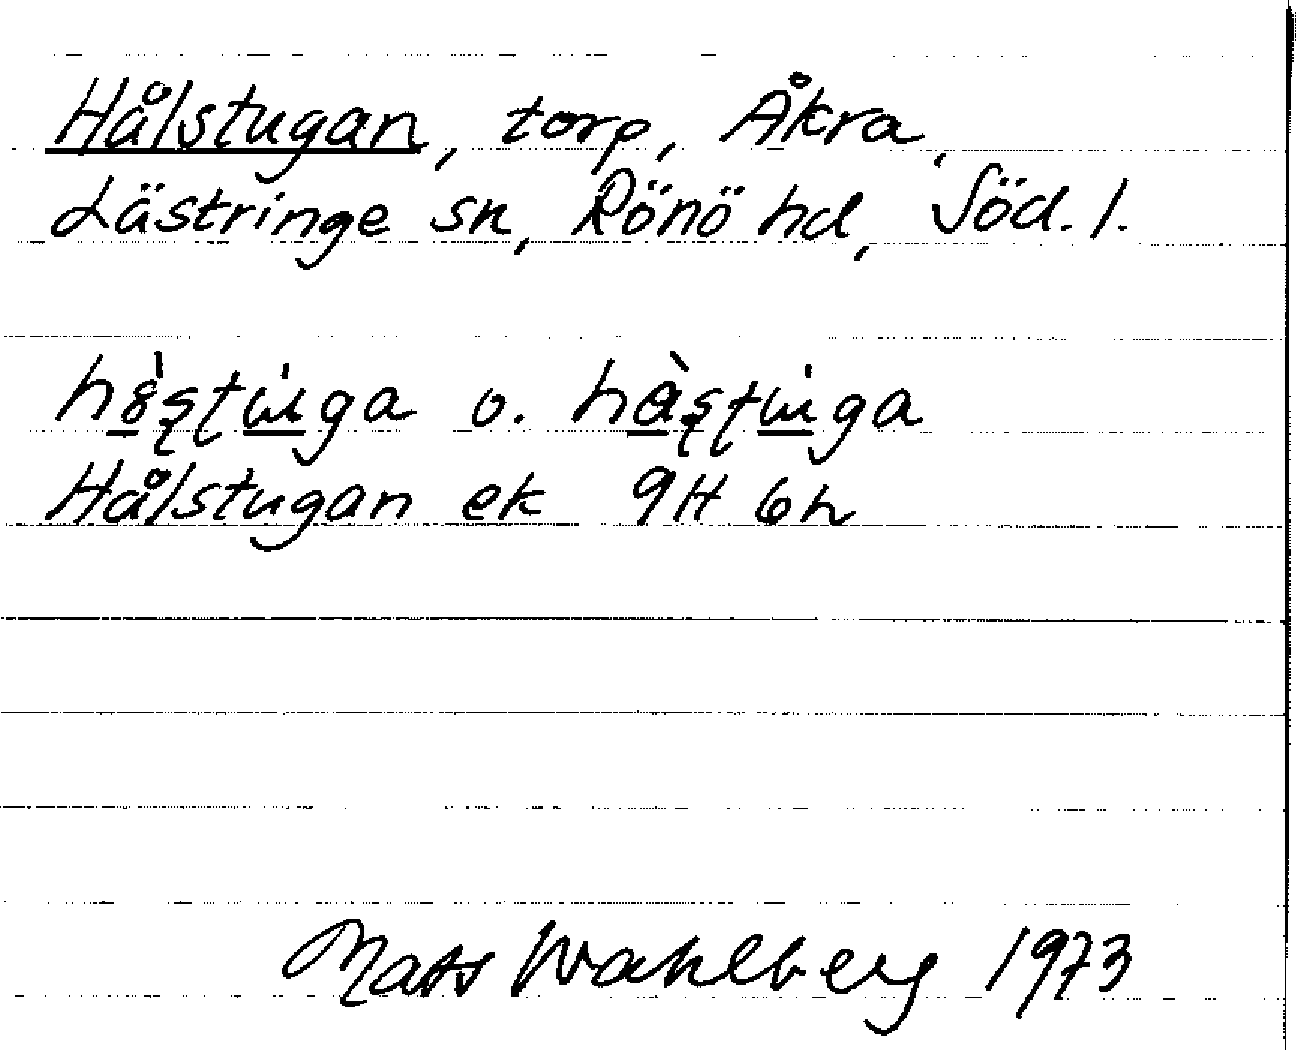 Hålstugan, torp, Åkra,
Lästringe sn, Rönö hd, Söd. l.
Hålstugan ek 9H 6h
Mats Wahlberg 1973